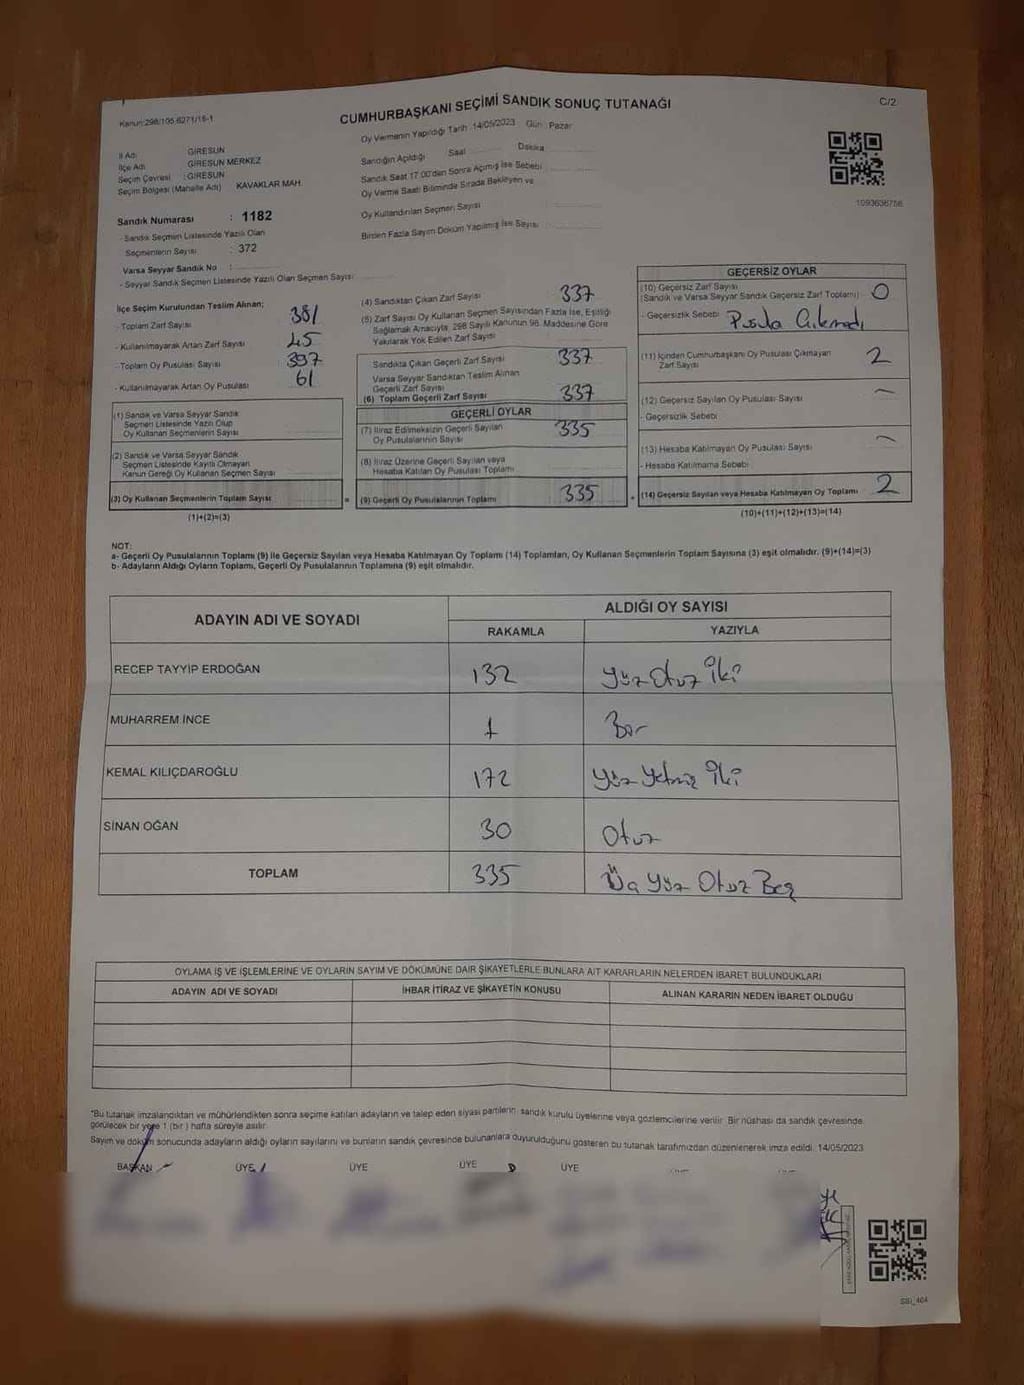 Kanun:298/105-6271/16-1
CUMHURBAŞKANI SEÇİMİ SANDIK SONUÇ TUTANAĞI
C/2
Oy Vermenin Yapıldığı Tarih :14/05/2023 Gün : Pazar
İl Adı : GİRESUN
İlçe Adı : GİRESUN MERKEZ
Seçim Çevresi : GİRESUN
Seçim Bölgesi (Mahalle Adı) KAVAKLAR MAH.
Sandığın Açıldığı Saat Dakika
Sandık Saat 17:00'dan Sonra Açılmış İse Sebebi
Oy Verme Saati Bitiminde Sırada Bekleyen ve
Oy Kullandırılan Seçmen Sayısı
Birden Fazla Sayım Döküm Yapılmış İse Sayısı
1093636756
Sandık Numarası : 1182
- Sandık Seçmen Listesinde Yazılı Olan
Seçmenlerin Sayısı : 372
Varsa Seyyar Sandık No :
- Seyyar Sandık Seçmen Listesinde Yazılı Olan Seçmen Sayısı
İlçe Seçim Kurulundan Teslim Alınan;
- Toplam Zarf Sayısı 381
- Kullanılmayarak Artan Zarf Sayısı 45
- Toplam Oy Pusulası Sayısı 397
- Kullanılmayarak Artan Oy Pusulası 61
(1) Sandık ve Varsa Seyyar Sandık
Seçmen Listesinde Yazılı Olup
Oy Kullanan Seçmenlerin Sayısı
(2) Sandık ve Varsa Seyyar Sandık
Seçmen Listesinde Kayıtlı Olmayan
Kanun Gereği Oy Kullanan Seçmen Sayısı
(3) Oy Kullanan Seçmenlerin Toplam Sayısı
(1)+(2)=(3)
(4) Sandıktan Çıkan Zarf Sayısı 337
(5) Zarf Sayısı Oy Kullanan Seçmen Sayısından Fazla İse, Eşitliği
Sağlamak Amacıyla 298 Sayılı Kanunun 98. Maddesine Göre
Yakılarak Yok Edilen Zarf Sayısı
Sandıkta Çıkan Geçerli Zarf Sayısı 337
Varsa Seyyar Sandıktan Teslim Alınan
Geçerli Zarf Sayısı
(6) Toplam Geçerli Zarf Sayısı 337
GEÇERLİ OYLAR
(7) İtiraz Edilmeksizin Geçerli Sayılan
Oy Pusulalarının Sayısı 335
(8) İtiraz Üzerine Geçerli Sayılan veya
Hesaba Katılan Oy Pusulası Toplamı
= (9) Geçerli Oy Pusulalarının Toplamı 335
GEÇERSİZ OYLAR
(10) Geçersiz Zarf Sayısı
(Sandık ve Varsa Seyyar Sandık Geçersiz Zarf Toplamı) 0
- Geçersizlik Sebebi : Pusula Çıkmadı
(11) İçinden Cumhurbaşkanı Oy Pusulası Çıkmayan
Zarf Sayısı 2
(12) Geçersiz Sayılan Oy Pusulası Sayısı —
- Geçersizlik Sebebi
(13) Hesaba Katılmayan Oy Pusulası Sayısı —
- Hesaba Katılmama Sebebi
+ (14) Geçersiz Sayılan veya Hesaba Katılmayan Oy Toplamı 2
(10)+(11)+(12)+(13)=(14)
NOT:
a- Geçerli Oy Pusulalarının Toplamı (9) ile Geçersiz Sayılan veya Hesaba Katılmayan Oy Toplamı (14) Toplamları, Oy Kullanan Seçmenlerin Toplam Sayısına (3) eşit olmalıdır. (9)+(14)=(3)
b- Adayların Aldığı Oyların Toplamı, Geçerli Oy Pusulalarının Toplamına (9) eşit olmalıdır.
ADAYIN ADI VE SOYADI
ALDIĞI OY SAYISI
RAKAMLA YAZIYLA
RECEP TAYYİP ERDOĞAN 132 Yüz Otuz İki
MUHARREM İNCE 1 Bir
KEMAL KILIÇDAROĞLU 172 Yüz Yetmiş İki
SİNAN OĞAN 30 Otuz
TOPLAM 335 Üç Yüz Otuz Beş
OYLAMA İŞ VE İŞLEMLERİNE VE OYLARIN SAYIM VE DÖKÜMÜNE DAİR ŞİKAYETLERLE BUNLARA AİT KARARLARIN NELERDEN İBARET BULUNDUKLARI
ADAYIN ADI VE SOYADI İHBAR İTİRAZ VE ŞİKAYETİN KONUSU ALINAN KARARIN NEDEN İBARET OLDUĞU
*Bu tutanak imzalandıktan ve mühürlendikten sonra seçime katılan adayların ve talep eden siyasi partilerin sandık kurulu üyelerine veya gözlemcilerine verilir. Bir nüshası da sandık çevresinde
görülecek bir yere 1 (bir) hafta süreyle asılır.
Sayım ve döküm sonucunda adayların aldığı oyların sayılarını ve bunların sandık çevresinde bulunanlara duyurulduğunu gösteren bu tutanak tarafımızdan düzenlenerek imza edildi. 14/05/2023
BAŞKAN ÜYE ÜYE ÜYE ÜYE